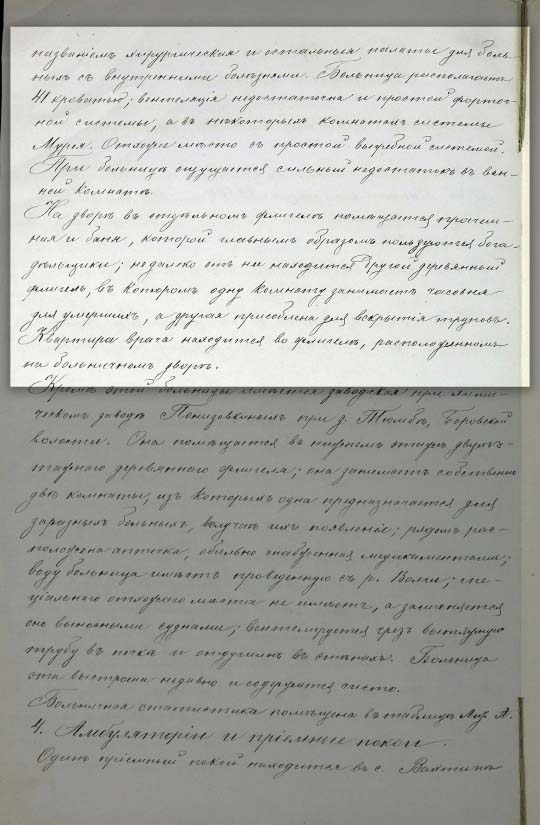 названіемъ хирургическія и остальныя палаты для боль
ныхъ съ внутренними болѣзнями. Больница располагаетъ
41 кроватью; вентеляція недостаточна и простой форточ-
ной системы, а въ нѣкоторыхъ комнатахъ системы
Мура. Отхожее мѣсто съ простой выгребной системой.
При больницѣ ощущается сильный недостатокъ въ ван-
ной комнатѣ.
На дворѣ въ отдѣльномъ флигелѣ помѣщается прачеш-
ная и баня, которой главнымъ образомъ пользуются бога-
дѣльщики; недалеко отъ нея находится другой деревянный
флигель, въ которомъ одну комнату занимаетъ часовня
для умершихъ, а другая приспособлена для вскрытія труповъ.
Квартира врача находится во флигелѣ, расположенномъ
на больничномъ дворѣ.
Кромѣ этой больницы имѣется заводская при хими-
ческомъ заводѣ Понизовкиныхъ при д. Боровской
волости. Она помѣщается въ нижнемъ этажѣ двухъ э-
тажнаго деревяннаго флигеля; она занимаетъ собственно
двѣ комнаты, изъ которыхъ одна предназначается для
заразныхъ больныхъ, въ случаѣ ихъ появленія; рядомъ рас-
положена аптечка, обильно снабженная медикаментами;
воду больница имѣетъ проведенную съ р. Волги; спе-
ціальнаго отхожаго мѣста не имѣетъ, а замѣняется
оно выносными суднами; вентелируется чрезъ вытяжную
трубу въ печкѣ и отдушины въ стѣнахъ. Больница
эта выстроена недавно и содержится чисто.
Больничная статистика помѣщена въ таблицѣ А.
4. Амбулаторіи и пріемные покои.
Одинъ пріемный покой находится въ с.